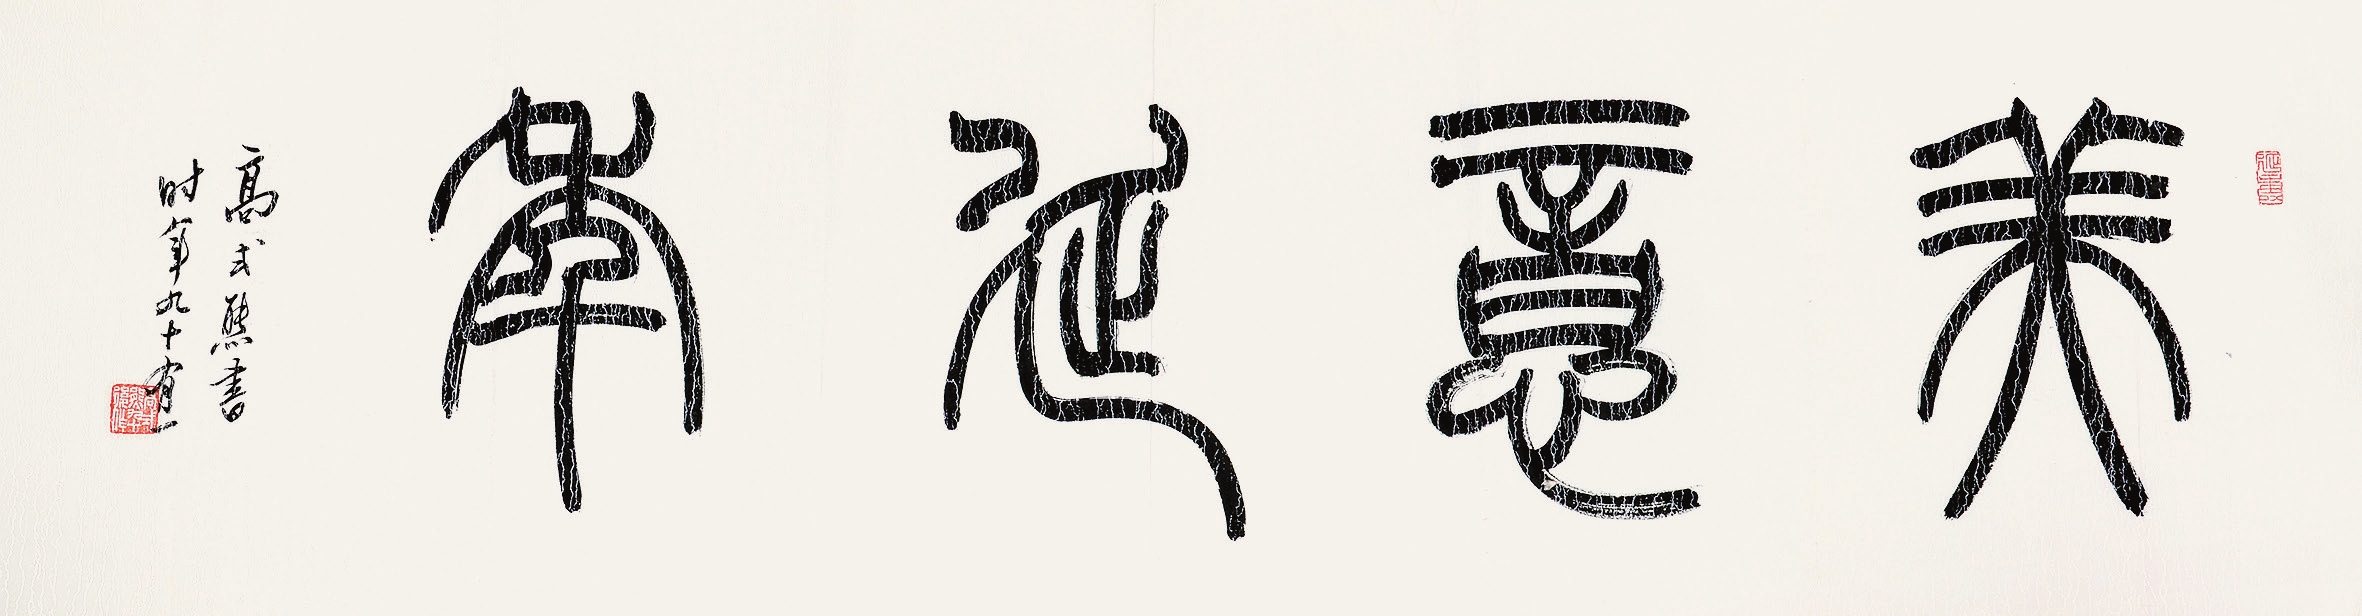 美意延年
高式熊書
时年九十有一